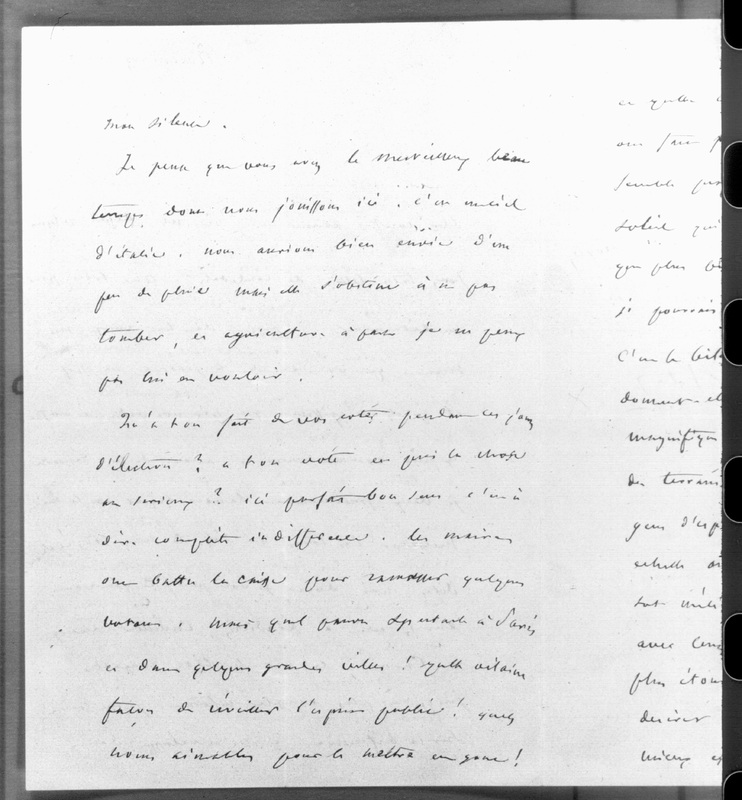 mon silence.
Je pense que vous avez le merveilleux beau
temps dont nous jouissons ici. c'est un ciel
d'italie. nous aurions bien envie d'un
peu de pluie mais elle s'obstine à ne pas
tomber, et agriculture à part je ne peux
pas lui en vouloir.
Qu'a t on fait de vos cotés pendant ces jours
d'élection? a t on voté et pris la chose
au serieux? ici parfait bon sens c'est à
dire complète indifférence. les maires
ont battu la caisse pour ramasser quelques
votans. mais quel pauvre spectacle à Paris
et dans quelques grandes villes! quelle vilaine
façon de réveiller l'esprit public! quels
noms aimables pour le mettre en gout!
ce qu'elle
ont fait
semble
soleil qui
que plus
je pourrais
c'est le
donnent
magnifique
des terrains
gens d'esp
echelle
sot
avec
plus
desirer
mieux